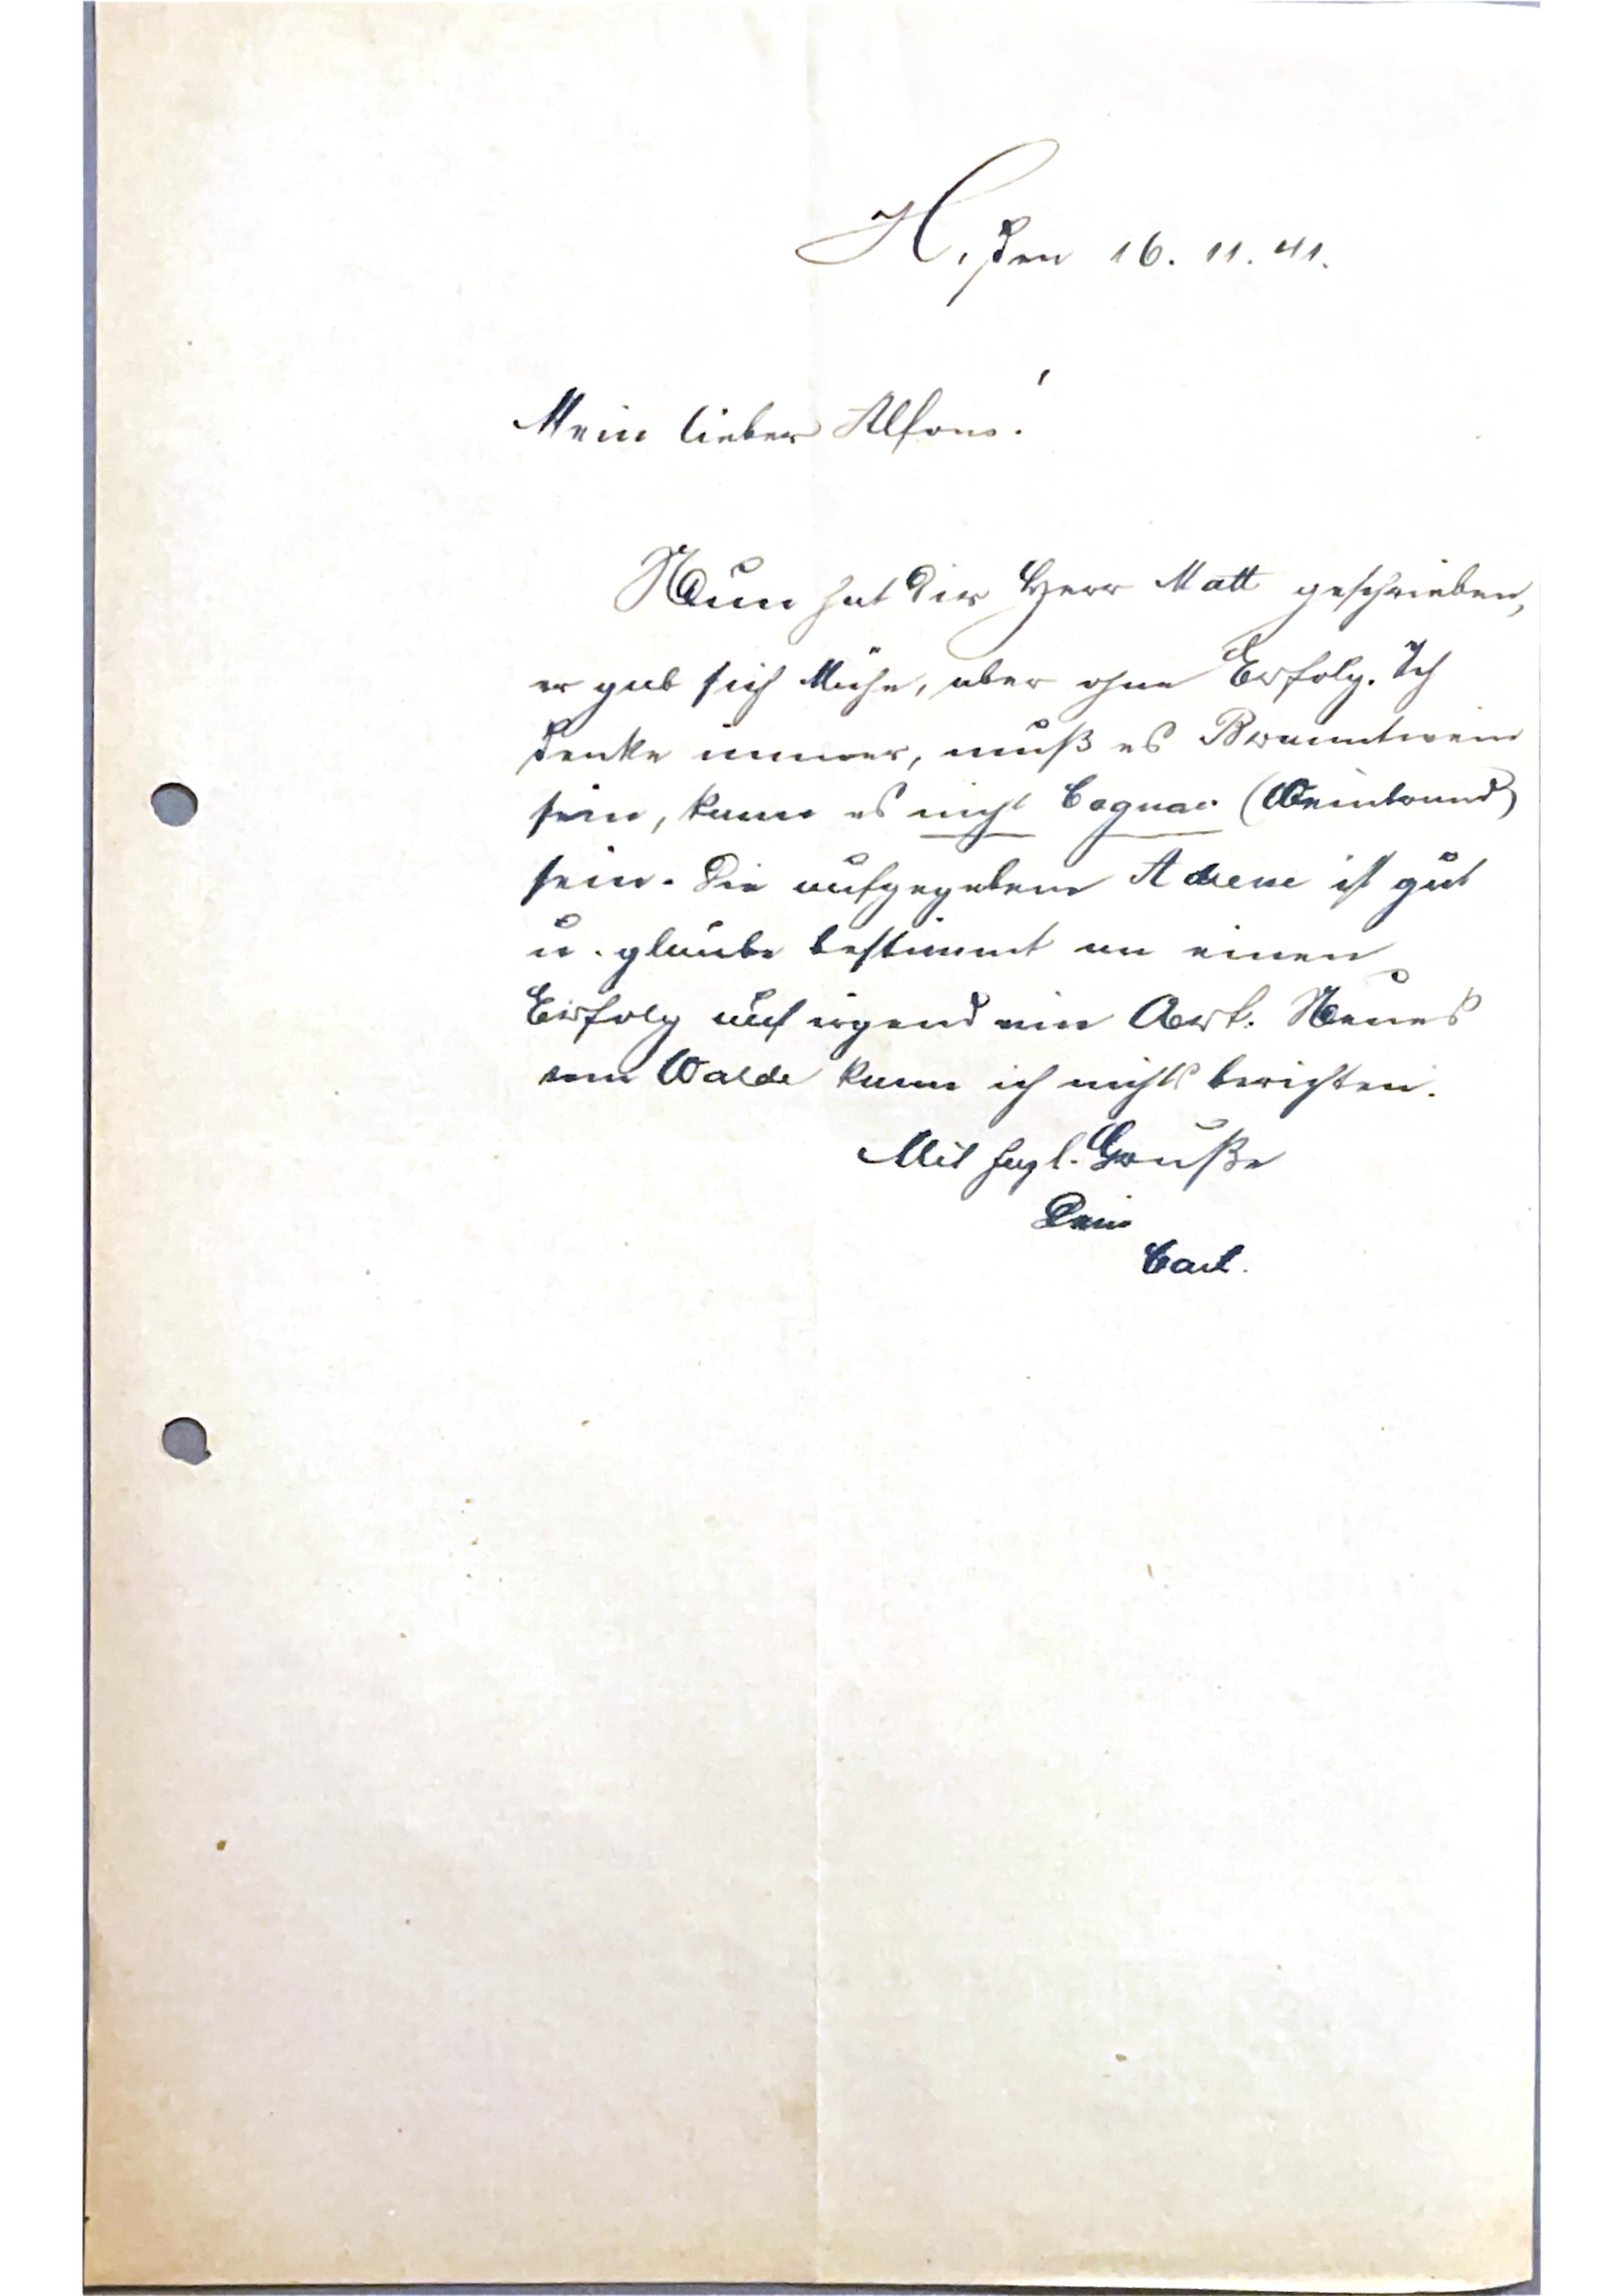 H, den 16. 11. 41.
Mein lieber Alfons!
Nun hat Dir Herr Matt geschrieben,
er gab sich Mühe, aber ohne Erfolg. Ich
denke immer, muß es Branntwein
sein, kann es nicht Cognac (Weinbrand)
sein. Die aufgegebene ist gut
u. glaube bestimmt an einen
Erfolg auf irgend eine Art. Neues
vom Walde kann ich nichts berichten.
Mit herzl. Gruße
Dein
Carl.